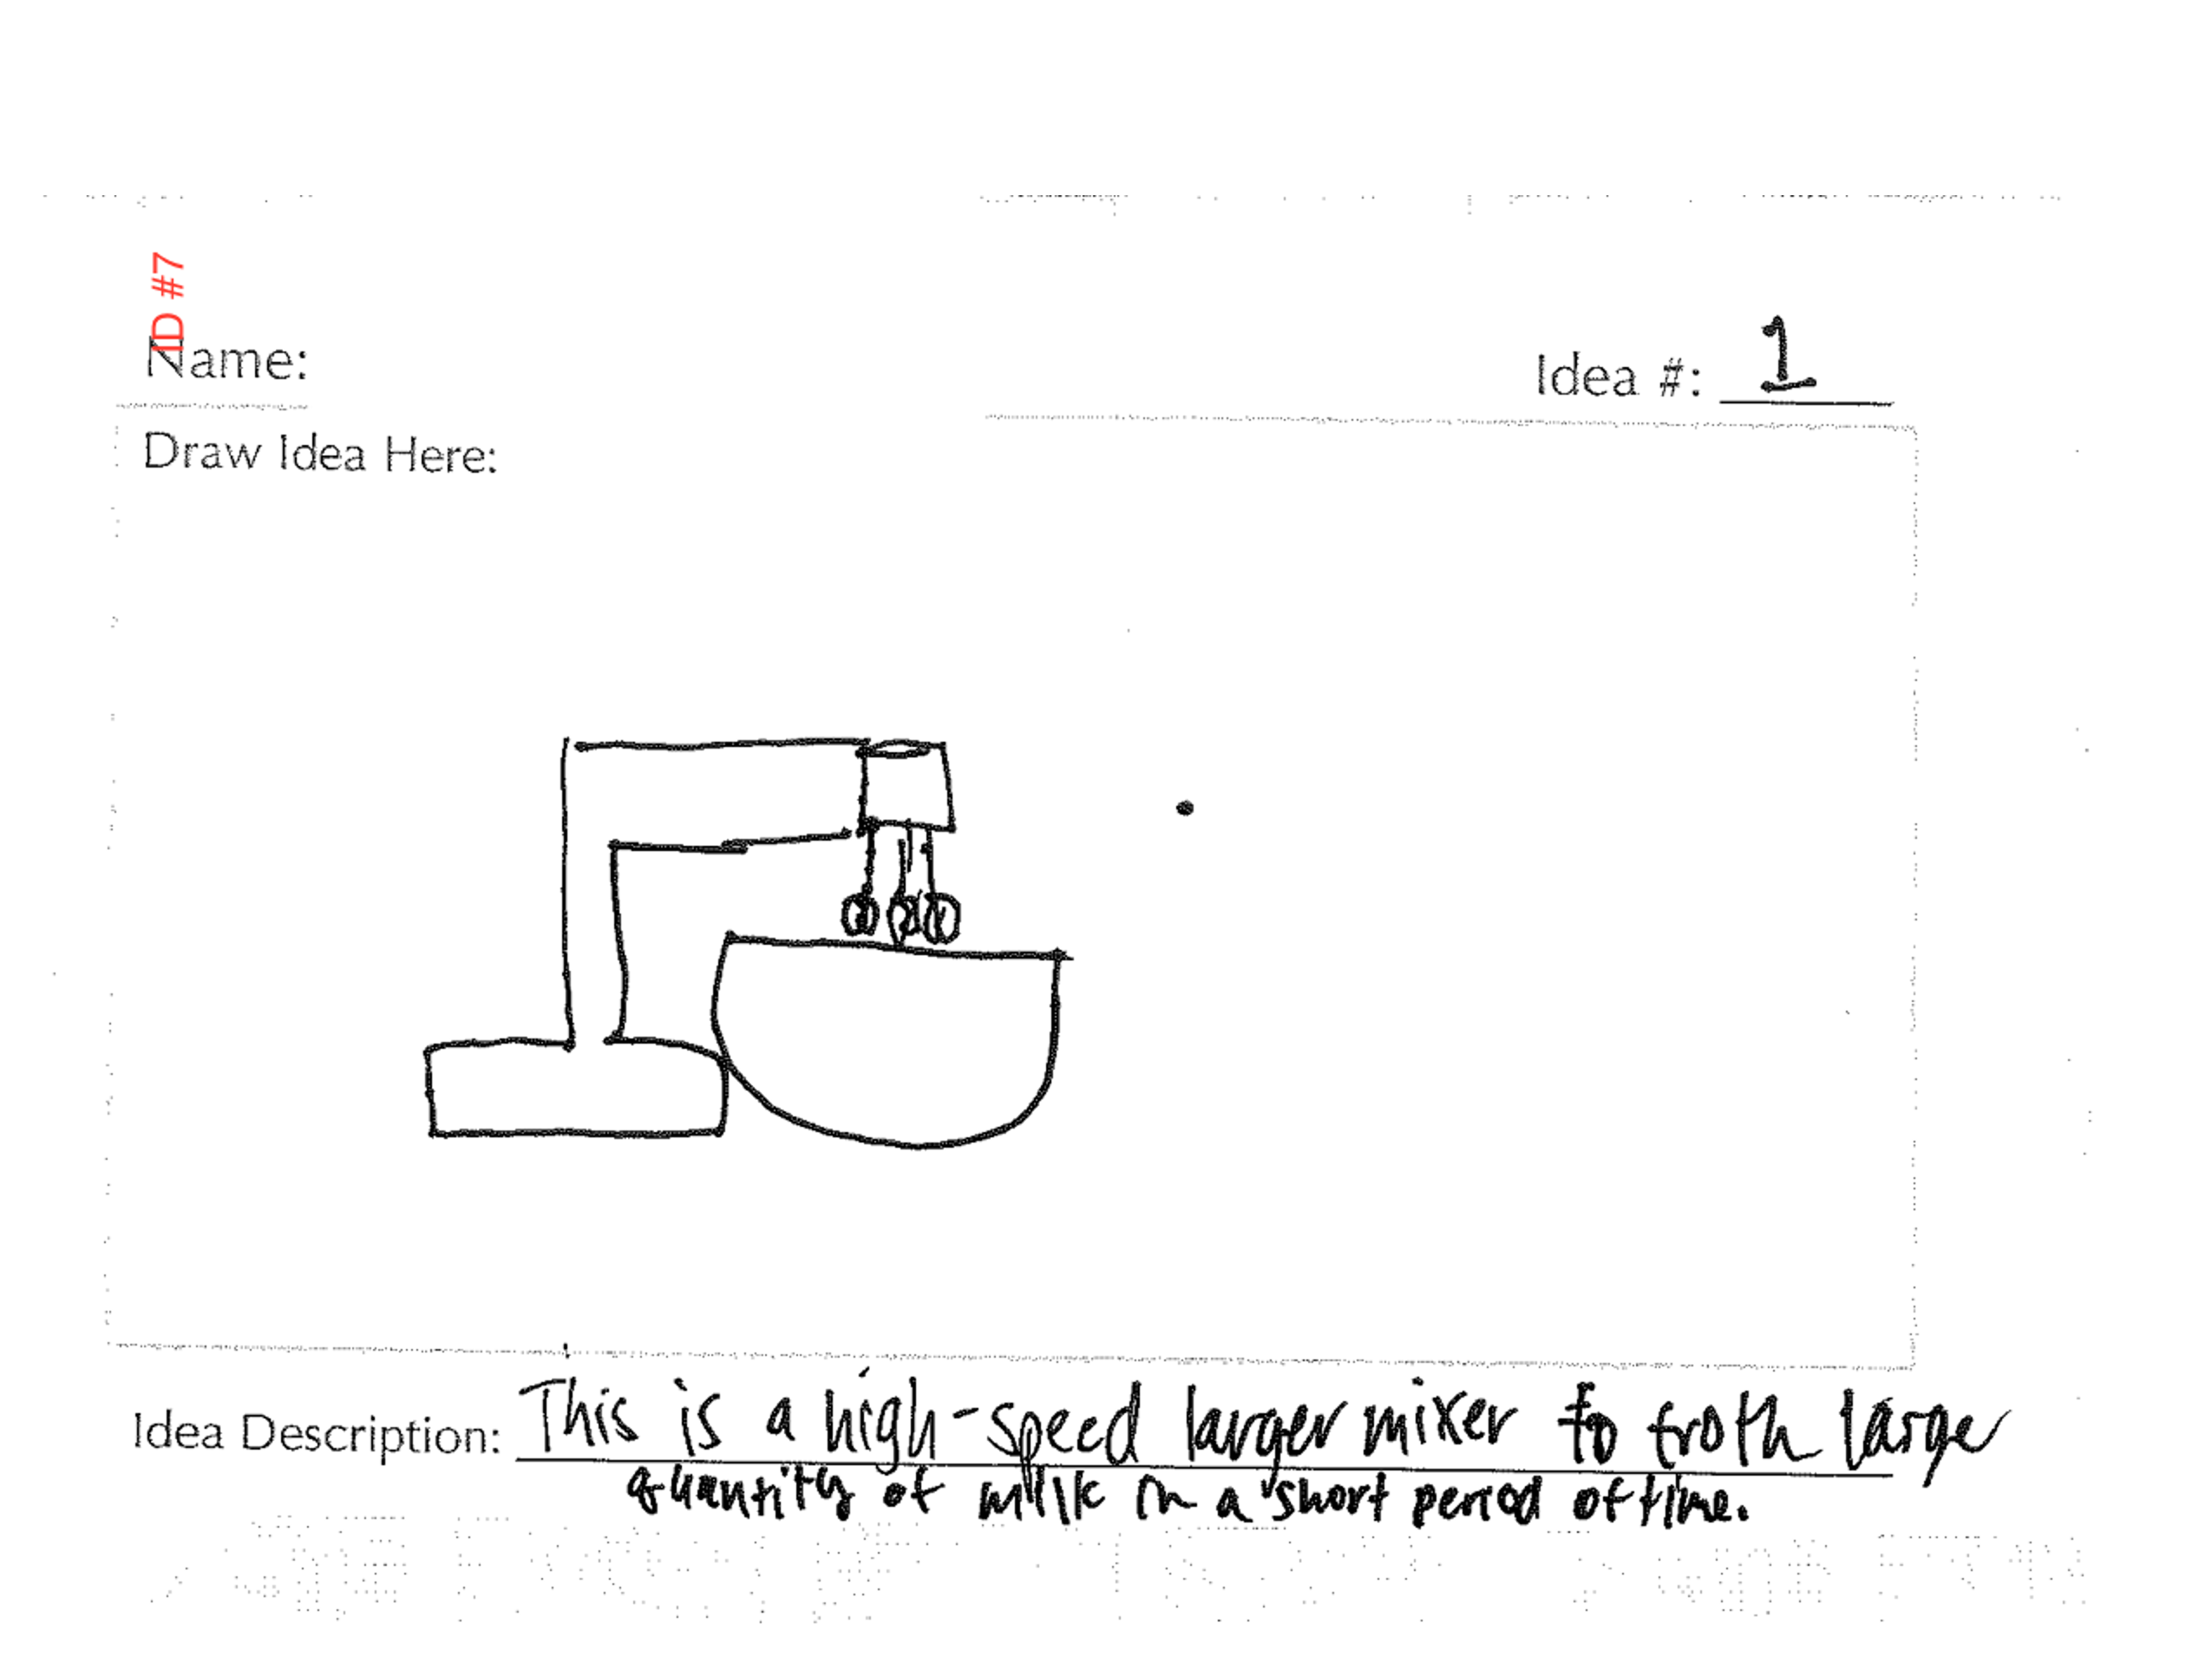 ID #7
Name:
Idea #: 1
Draw Idea Here:
Idea Description: This is a high-speed larger mixer to froth large
quantity of milk in a short period of time.